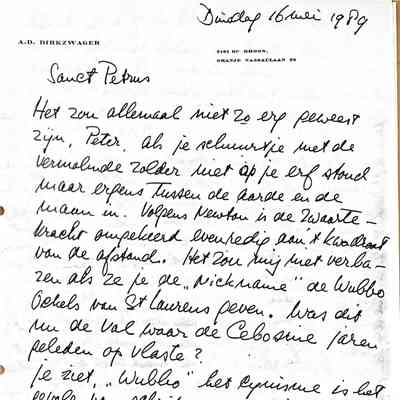 Dinsdag 16 mei 1989
A.D. DIRKZWAGER
3161 HP RHOON,
ORANJE NASSAULAAN 28
Sanct Petrus
Het zou allemaal niet zo erg geweest
zijn, Peter, als je schuurtje met de
vermolmde zolder niet op je erf stond
maar ergens tussen de aarde en de
maan in. Volgens Newton is de zwaarte-
kracht omgekeerd evenredig aan 't kwadraat
van de afstand. Het zou mij niet verba-
zen als ze je de „Nickname" de Wubbo
Ockels van St Laurens geven. Was dit
nu de val waar de Cebosine jaren
geleden op vlaste?
Je ziet, „Wubbo" het cynisme is het